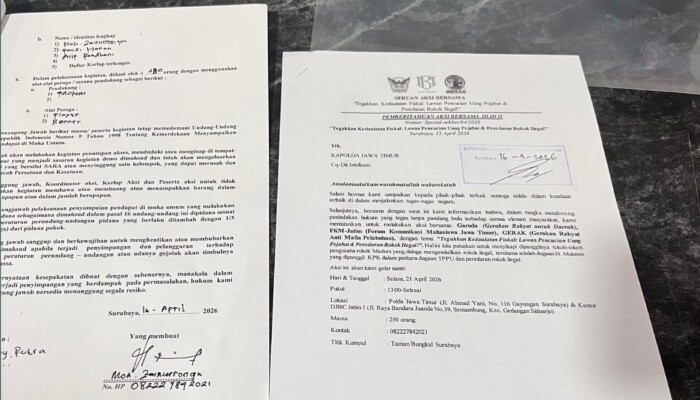 b. Nama / identitas lengkap
1)
2)
3)
4)
5) Daftar Korlap terlampir.
Dalam pelaksanaan kegiatan, diikuti oleh ± 250 orang dengan menggunakan
alat-alat peraga / sarana pendukung sebagai berikut :
a. Pendukung :
1)
2)
b. Alat Peraga :
1) Flayer
2) Banner
Jawab berikut massa/ peserta kegiatan tetap mempedomani Undang-Undang
Republik Indonesia Nomor 9 Tahun 1998 Tentang Kemerdekaan Menyampaikan
Pendapat di Muka Umum.
akan melakukan kegiatan penutupan akses, menduduki atau menginap di tempat
yang menjadi sasaran kegiatan demo dimaksud dan tidak akan mengeluarkan
yang berbau SARA atau menyinggung satu kelompok, yang dapat merusak dan
Persatuan dan Kesatuan.
jawab, Koordinator aksi, Korlap Aksi dan Peserta aksi untuk tidak
kegiatan membawa atau membuang atau menumpahkan barang dalam
apapun atau dalam jumlah berapapun.
penyampaian pendapat di muka umum yang melakukan
sebagaimana dimaksud dalam pasal 16 undang-undang ini dipidana sesuai
peraturan perundang-undangan pidana yang berlaku ditambah dengan 1/3
dari pidana pokok.
jawab sanggup dan berkewajiban untuk menghentikan atau membubarkan
dimaksud apabila terjadi penyimpangan dan pelanggaran terhadap
peraturan perundang – undangan atau adanya gejolak akan timbulnya
pernyataan kesepakatan dibuat dengan sebenarnya, manakala dalam
terjadi penyimpangan yang berdampak pada permasalahan, hukum kami
jawab bersedia menanggung segala resiko.
Surabaya, 16 - April 2026
Yang membuat
Putra
No. HP 082227892021
SERUAN AKSI BERSAMA
"Tegakkan Kedaulatan Fiskal: Lawan Pencucian Uang Pejabat &
Peredaran Rokok Ilegal"
PEMBERITAHUAN AKSI BERSAMA JILID II
"Tegakkan Kedaulatan Fiskal: Lawan Pencucian Uang Pejabat & Peredaran Rokok Ilegal"
Surabaya, 15 April 2026
Yth.
KAPOLDA JAWA TIMUR
Cq-Dir.Intelkam
16 - 4 - 2026
Assalamualaikum warahmatullahi wabarokatuh
Salam hormat kami sampaikan kepada pihak-pihak terkait, semoga selalu dalam keadaan
terbaik di dalam menjalankan tugas-tugas negara.
Selanjutnya, bersama dengan surat ini kami informasikan bahwa, dalam rangka mendorong
penindakan hukum yang tegas tanpa pandang bulu terhadap semua elemen masyarakat, kami
bermaksud untuk melakukan aksi bersama: Garuda (Gerakan Rakyat untuk Daerah),
FKM-Jatim (Forum Komunikasi Mahasiswa Jawa Timur), GEBRAK (Gerakan Rakyat
Anti Mafia Pelabuhan), dengan tema "Tegakkan Kedaulatan Fiskal: Lawan Pencucian Uang
Pejabat & Peredaran Rokok Ilegal".
pengusaha rokok Madura yang diduga mengendalikan rokok ilegal, terutama adalah dugaan H. Mukmin
yang dipanggil KPK dalam perkara dugaan TPPU dan peredaran rokok ilegal.
Aksi ini akan kami gelar nanti:
Hari & Tanggal : Selasa, 21 April 2026
Pukul : 13:00-Selesai
Lokasi : Polda Jawa Timur (Jl. Ahmad Yani, No. 116 Gayungan Surabaya) & Kantor
DJBC Jatim I (Jl. Raya Bandara Juanda No.39, Semambung, Kec. Gedangan Sidoarjo)
Massa : 250 orang
Kontak : 082227842021
Titik Kumpul : Taman Bungkul Surabaya